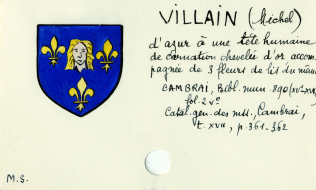 VILLAIN (Michel)
d'azur à une tête humaine
de carnation chevelée d'or accom
pagnée de 3 fleurs de lis du même
CAMBRAI, Bibl. mun. 890 (XVe-XVII
fol. 2 vº
Catal. gén. des mss., Cambrai,
t. XVII, p. 361-362
M.S.